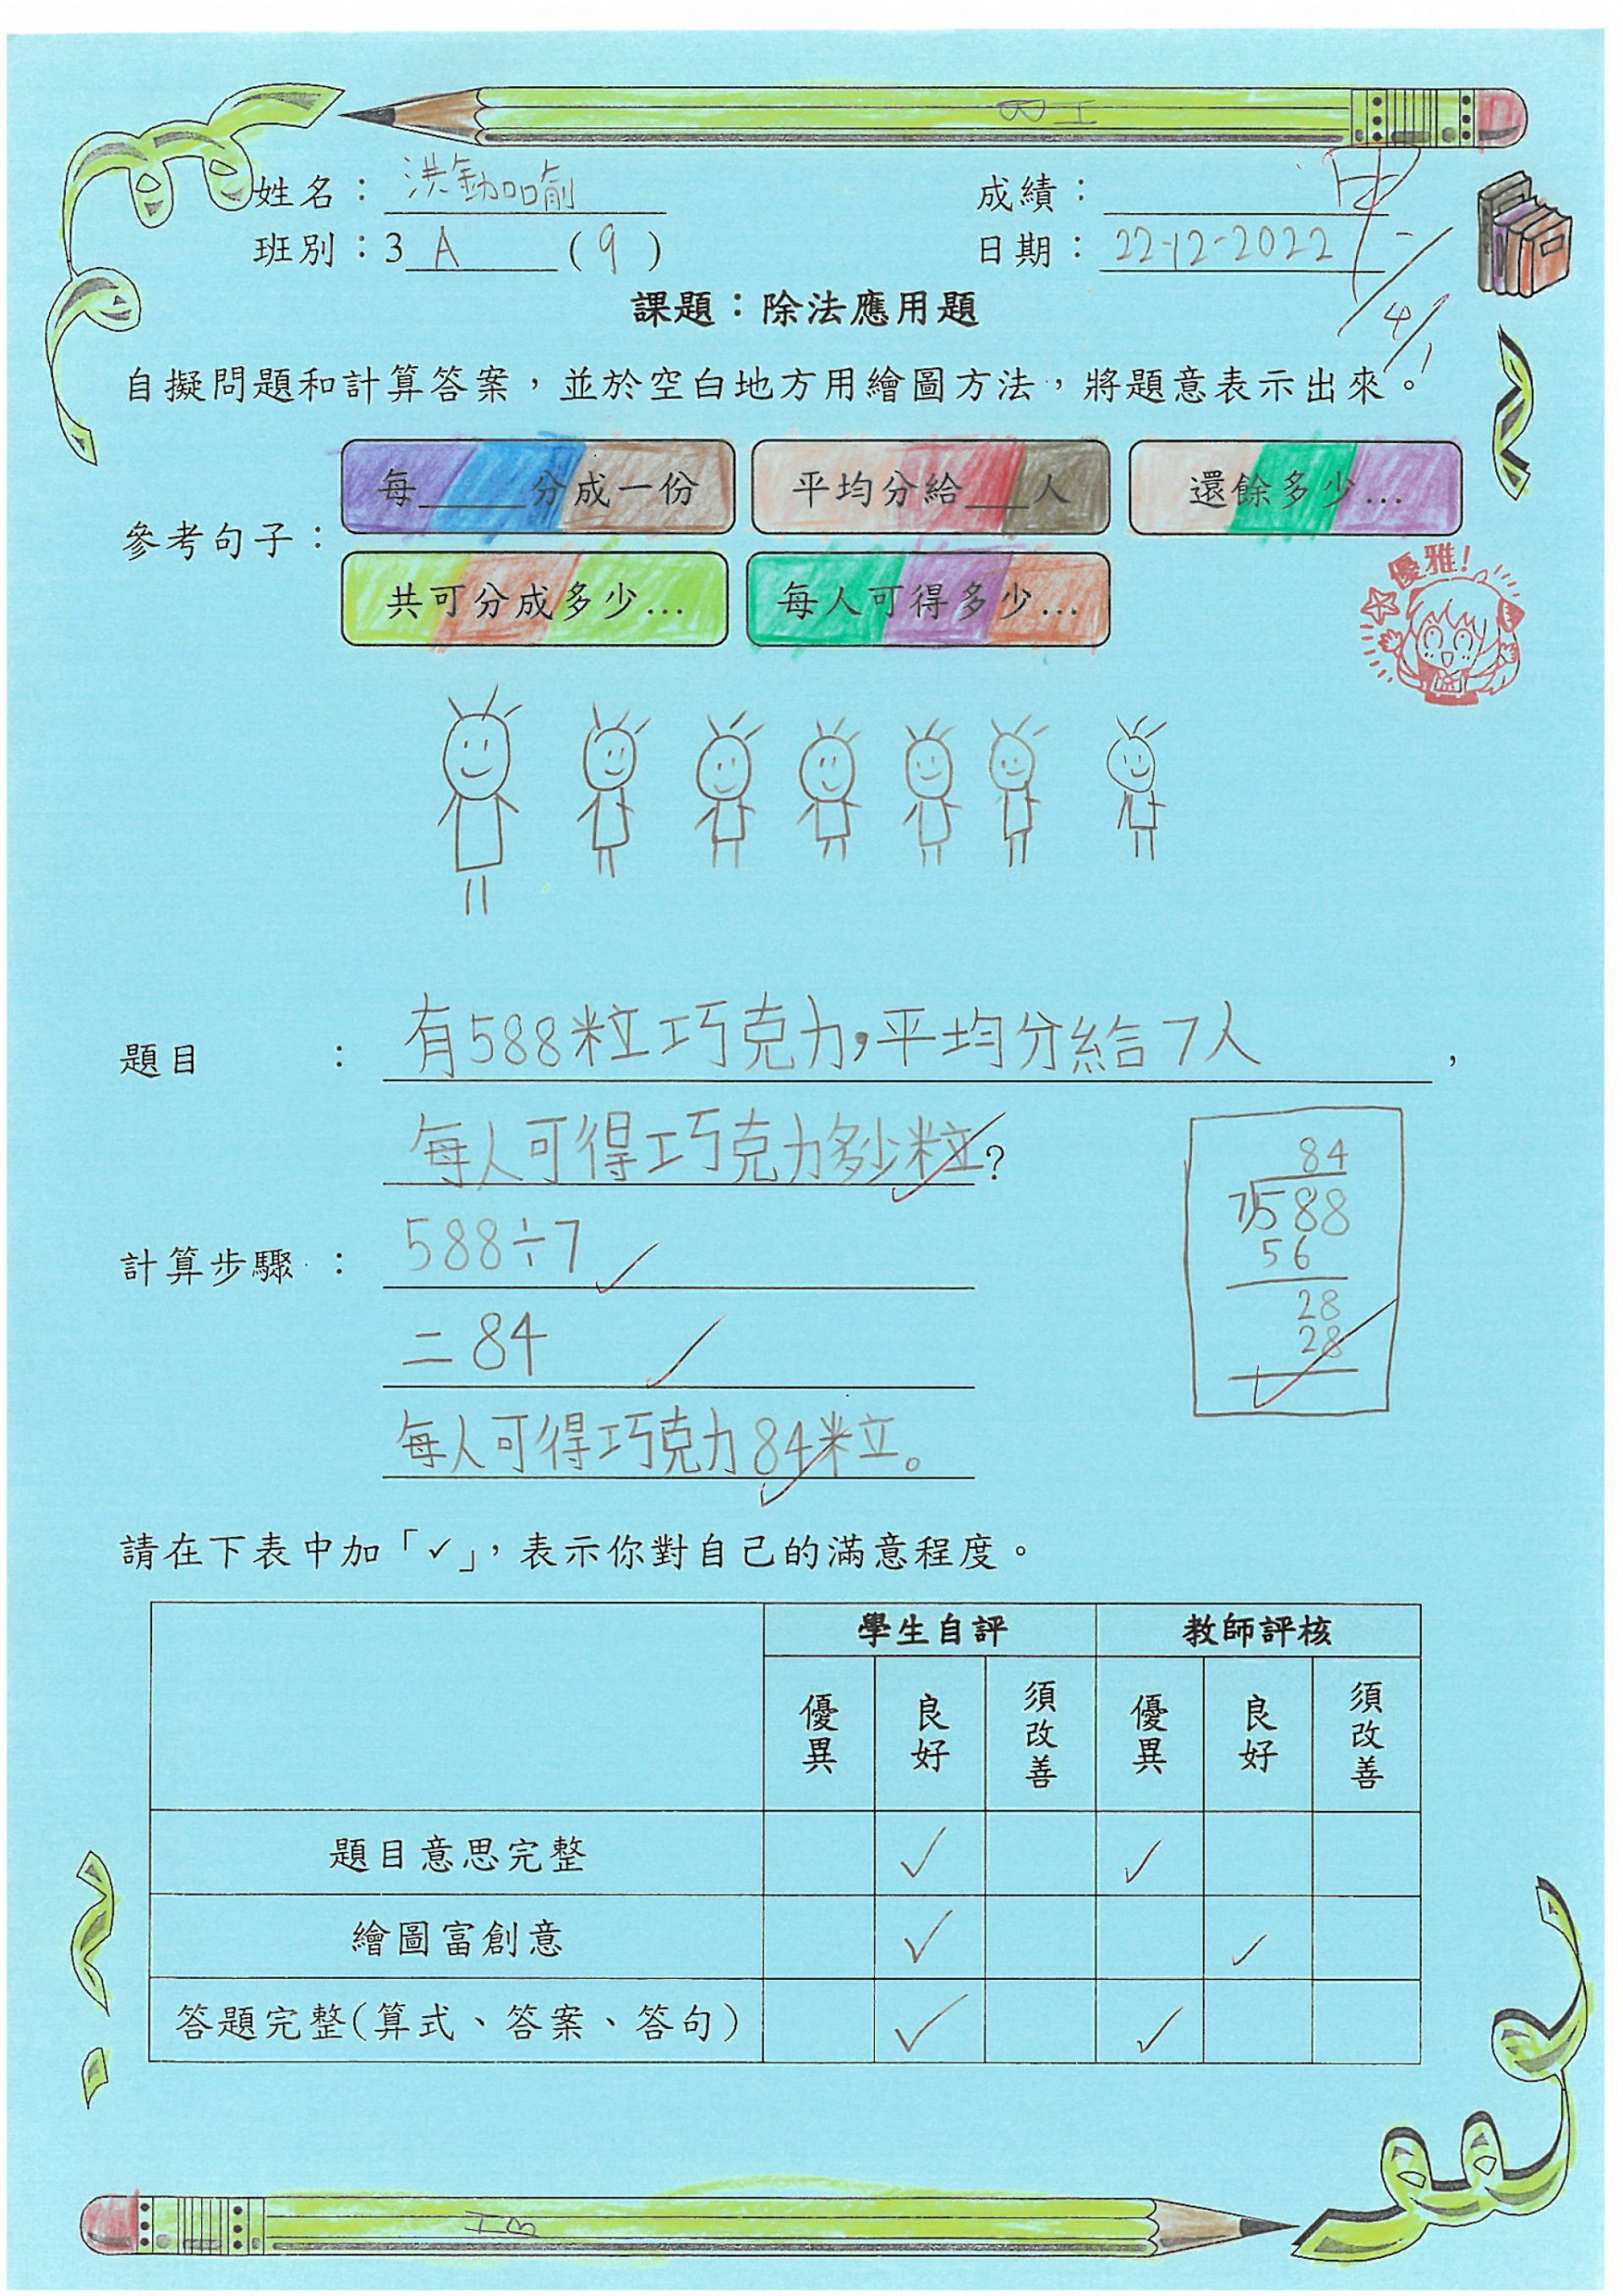 姓名：洪鈉喻
成績：
班別：3 A (9)
日期：22-12-2022
4/1
課題：除法應用題
自擬問題和計算答案，並於空白地方用繪圖方法，將題意表示出來。
參考句子：
每＿＿分成一份
平均分給＿人
還餘多少...
共可分成多少...
每人可得多少...
優雅！
題目：有588粒巧克力，平均分給7人，
每人可得巧克力多少粒？
計算步驟：588÷7
=84
每人可得巧克力84粒。
84
7)588
56
28
28
請在下表中加「✓」，表示你對自己的滿意程度。
學生自評 教師評核
優異 良好 須改善 優異 良好 須改善
題目意思完整 ✓ ✓
繪圖富創意 ✓ ✓
答題完整(算式、答案、答句) ✓ ✓